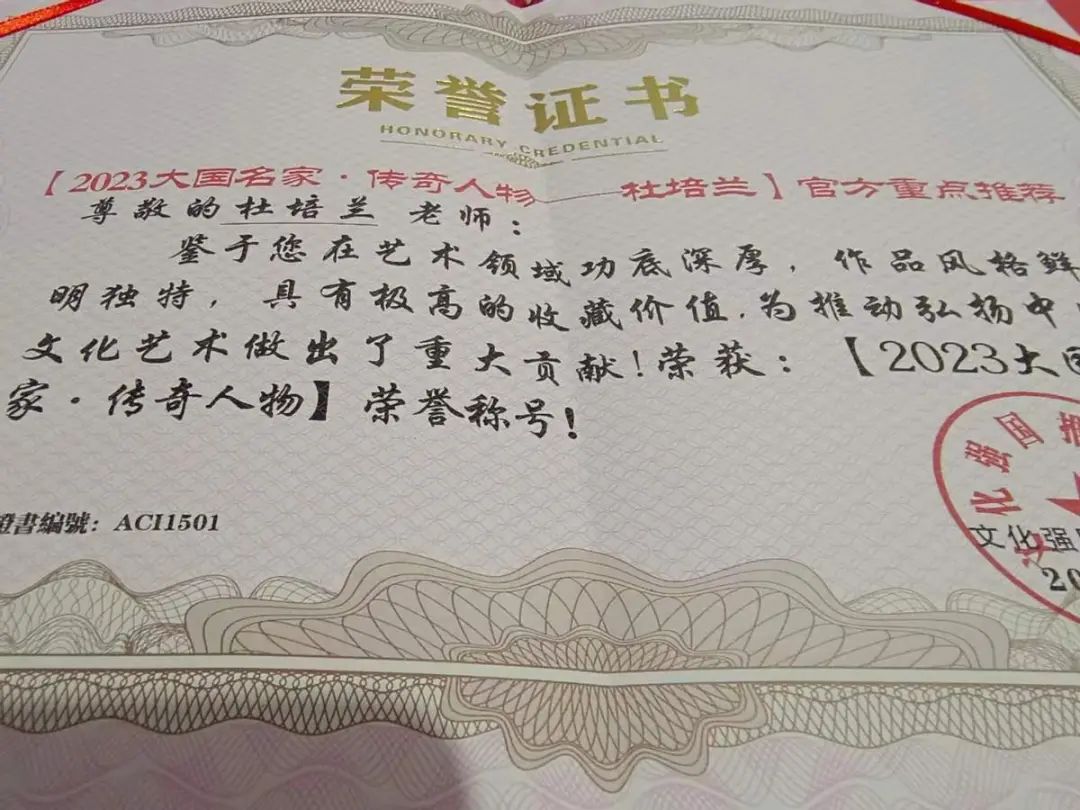 荣誉证书
HONORARY CREDENTIAL
【2023大国名家·传奇人物——杜培兰】官方重点推荐
尊敬的杜培兰 老师：
鉴于您在艺术领域功底深厚，作品风格鲜
明独特，具有极高的收藏价值.为推动弘扬中
文化艺术做出了重大贡献！荣获：【2023大国
家·传奇人物】荣誉称号！
證書編號：ACI1501
化强国
文化强
20